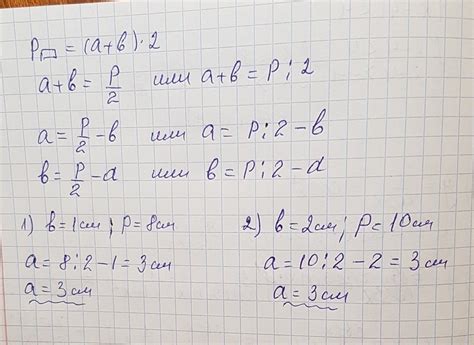 P▭ = (a+b)·2
a+b = P/2 или a+b = P:2
a = P/2 - b или a = P:2 - b
b = P/2 - d или b = P:2 - d
1) b=1см; P=8см
a = 8:2-1=3см
a=3см
2) b=2см; P=10см
a=10:2-2=3см
a=3см